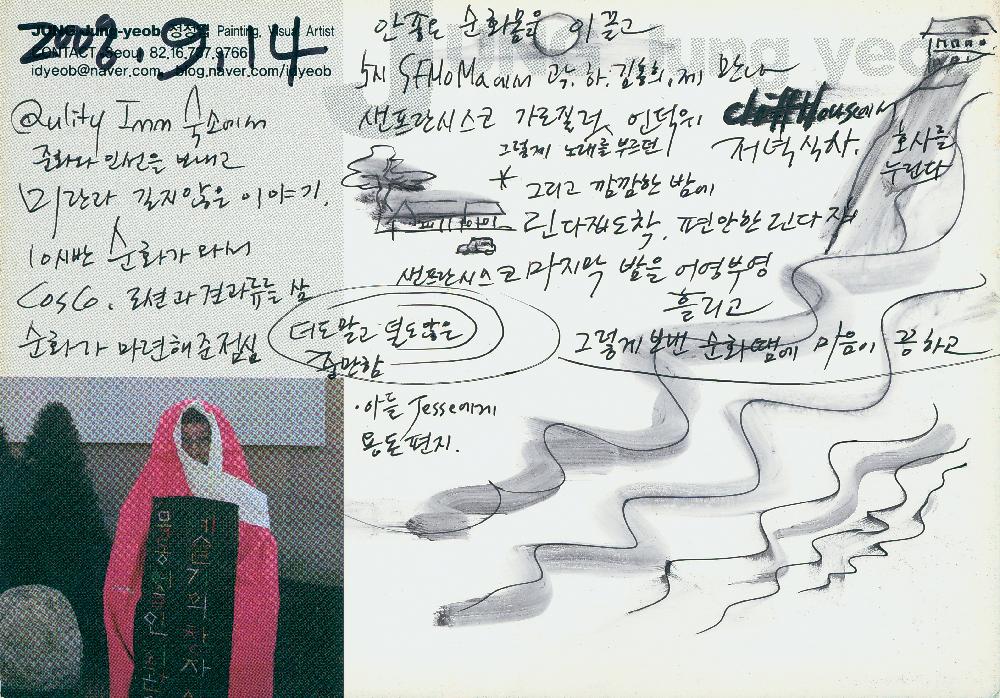 2008. 9. 14
JUNG Jung-yeob 정정엽 Painting, Visual Artist
CONTACT Seoul 82.16.787.9766
idyeob@naver.com, blog.naver.com/idyeob
@Qulity Inn 숙소에서
준화와 인선은 보내고
미란과 길지않은 이야기.
10시반 순화가 와서
CosCo. 로션과 견과류를 삼
순화가 마련해준 점심
더도말고 덜도않은
충만함
안좋은 순화몸을 이끌고
5시 SFMoMa에서 곽.하.김홍희.제 만나
샌프란시스코 가로질러, 언덕위 cliff House에서
저녁식사.
호사를
누린다
그렇게 노래를 부르던
* 그리고 깜깜한 밤에
린다집도착. 편안한 린다 집
샌프란시스코 마지막 밤을 어영부영
흘리고
그렇게 보낸 순화땜에 마음이 콩하고
·아들 Jesse에게
용돈 편지.
JUNG Jung yeo